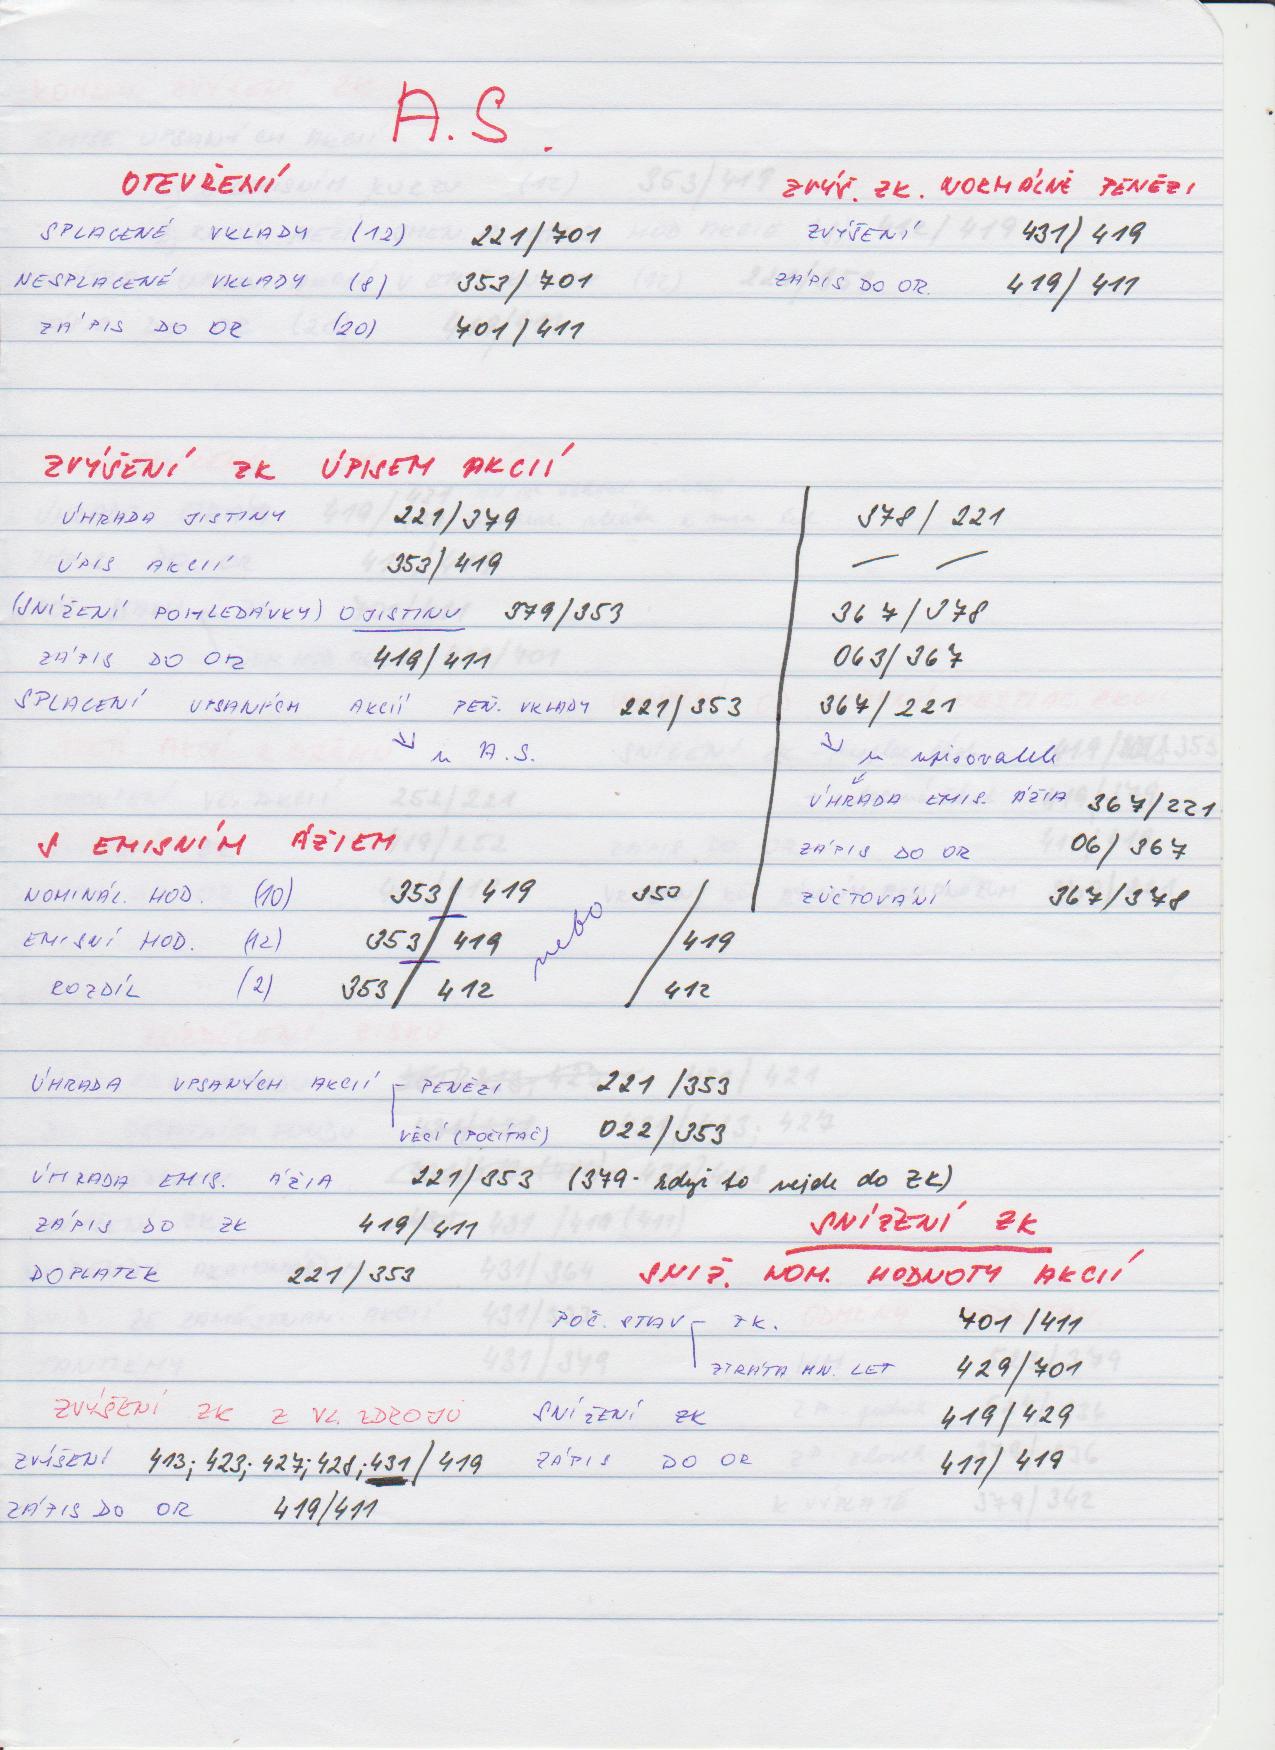 A.S.
OTEVŘENÍ
SPLACENÉ VKLADY (12) 221/701
NESPLACENÉ VKLADY (8) 353/701
ZÁPIS DO OR (20) 701/411
ZVÝŠ. ZK. NORMÁLNĚ PENĚZI
ZVÝŠENÍ 431/419
ZÁPIS DO OR. 419/411
ZVÝŠENÍ ZK ÚPISEM AKCIÍ
ÚHRADA JISTINY 221/379 378/221
ÚPIS AKCIÍ 353/419 — —
(SNÍŽENÍ POHLEDÁVKY) O JISTINU 379/353 367/378
ZÁPIS DO OR 419/411 063/367
SPLACENÍ UPSANÝCH AKCIÍ PEŇ. VKLADY 221/353 367/221
↘ u A.S. ↘ u upisovatele
ÚHRADA EMIS. ÁŽIA 367/221
ZÁPIS DO OR 06/367
ZÚČTOVÁNÍ 367/378
S EMISNÍM ÁŽIEM
NOMINÁL. HOD. (10) 353/419 nebo 353/
EMISNÍ HOD. (12) 353/419 /419
ROZDÍL (2) 353/412 /412
ÚHRADA UPSANÝCH AKCIÍ PENĚZI 221/353
VĚCÍ (POČÍTAČ) 022/353
ÚHRADA EMIS. ÁŽIA 221/353 (379 - když to nejde do ZK)
ZÁPIS DO ZK 419/411
DOPLATEK 221/353
SNÍŽENÍ ZK
SNÍŽ. NOM. HODNOTY AKCIÍ
POČ. STAV ZK. 701/411
ZTRÁTA MN. LET 429/701
SNÍŽENÍ ZK 419/429
ZÁPIS DO OR 411/419
ZVÝŠENÍ ZK Z VL. ZDROJŮ
ZVÝŠENÍ 413; 423; 427; 428; 431/419
ZÁPIS DO OR 419/411